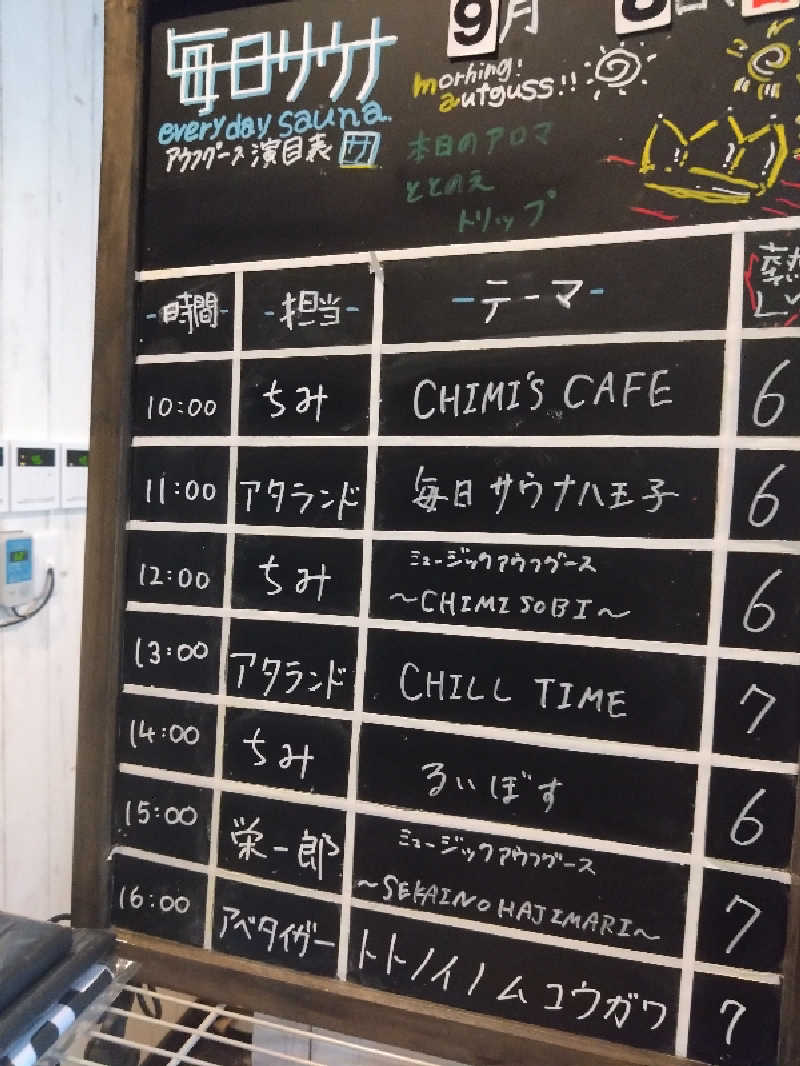 毎日サウナ
9月 8日
everyday sauna.
アウフグース演目表 サ
morning!
autguss!!
本日のアロマ
ととのえ
トリップ
時間 担当 テーマ 熱Lv
10:00 ちみ CHIMI'S CAFE 6
11:00 アタランド 毎日サウナ八王子 6
12:00 ちみ ミュージックアウフグース
～CHIMI SOBI～ 6
13:00 アタランド CHILL TIME 7
14:00 ちみ るいぼす 6
15:00 栄一郎 ミュージックアウフグース
～SEKAINO HAJIMARI～ 7
16:00 アベタイガー トトノイノムコウガワ 7